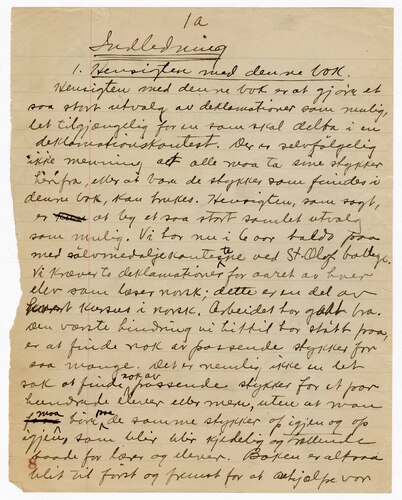 1a
Indledning
1. Hensigten med denne bok.
Hensigten med denne bok er at gjøre et
saa stort utvalg av deklamationer som mulig,
let tilgjængelig for en som skal delta i en
deklamationskontest. Der er selvfølgelig
ikke menning at alle maa ta sine stykker
herfra, eller at bare de stykker som findes i
denne bok, kan brukes. Hensigten, som sagt,
er at by et saa stort samlet utvalg
som mulig. Vi har nu i 6 aar holdt paa
med sølvmedaljekontester ved St. Olaf College.
Vi kræver to deklamationer for aaret av hver
elev som læser norsk; dette er en del av
kursus i norsk. Arbeidet har gaat bra.
Den værste hindring vi hittil har støtt paa,
er at finde nok av passende stykker for
saa mange. Det er nemlig ikke en let
sak at finde nok av passende stykker for et par
hundrede elever eller mer, uten at man
maa høre paa de samme stykker op igjen og op
igjen, som blir kjedelig og trættende
baade for lærer og elever. Boken er altsaa
blit til først og fremst for at hjælpe vor
8